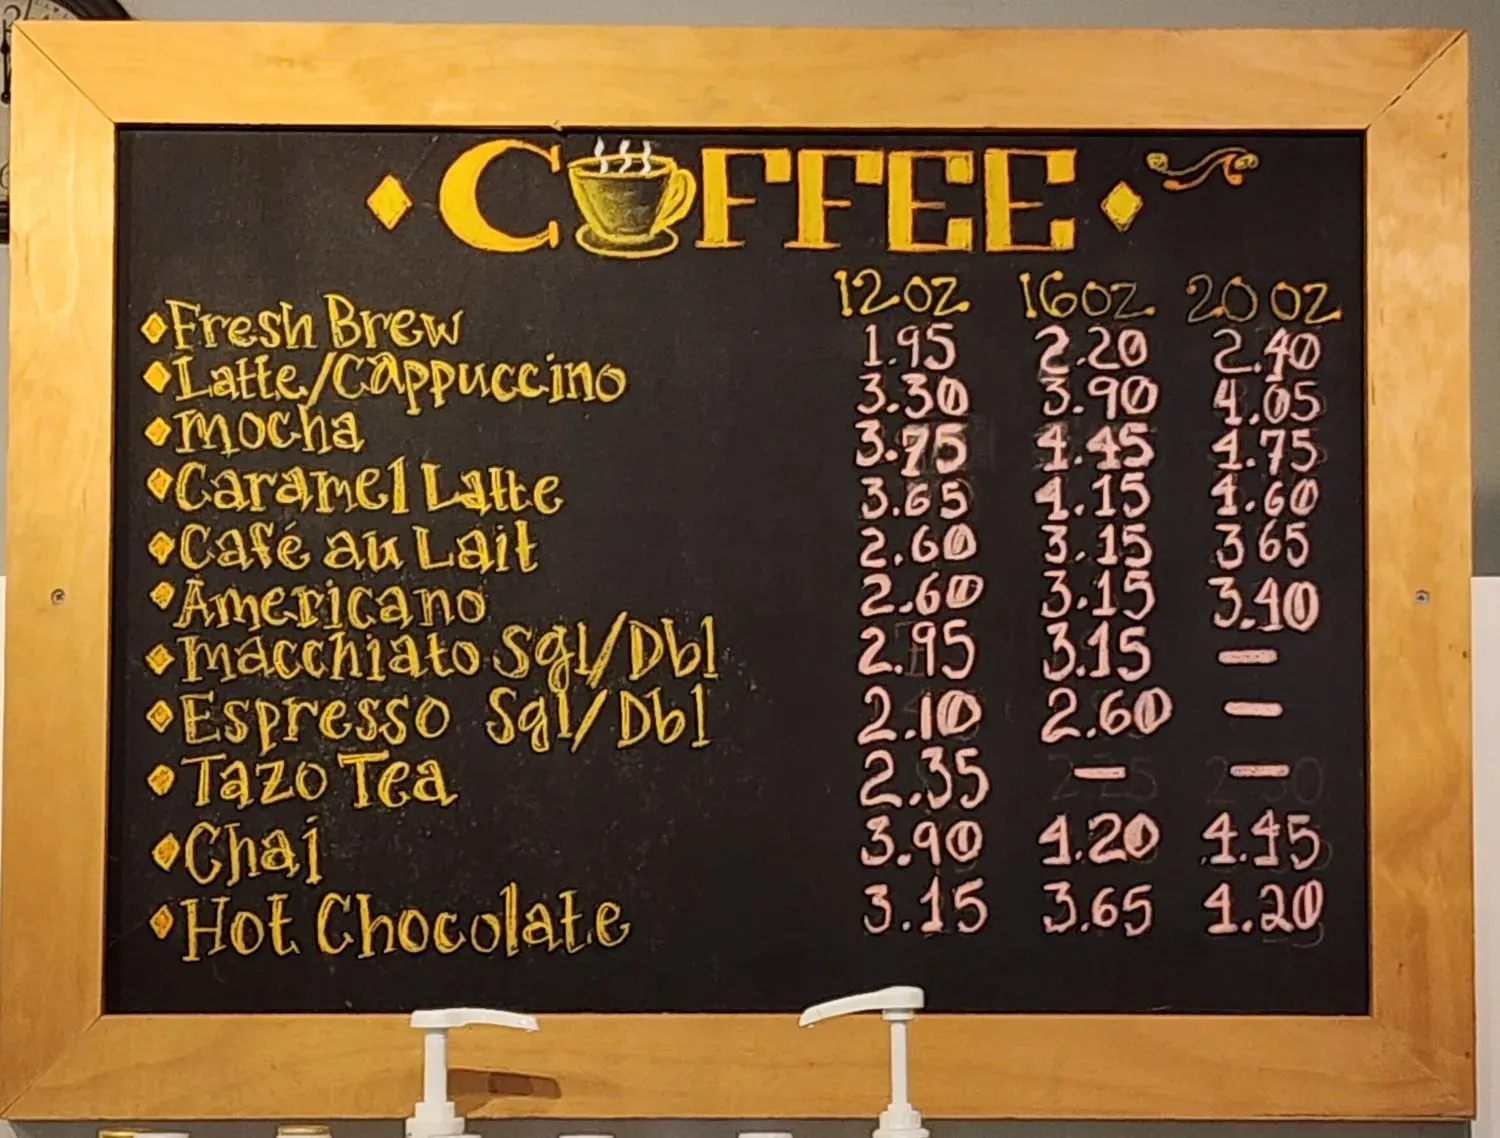 COFFEE
12oz 16oz 20oz
Fresh Brew 1.95 2.20 2.40
Latte/Cappuccino 3.30 3.90 4.05
mocha 3.75 4.45 4.75
Caramel Latte 3.65 4.15 4.60
Café au Lait 2.60 3.15 3 65
Americano 2.60 3.15 3.40
macchiato Sgl/Dbl 2.95 3.15 —
Espresso Sgl/Dbl 2.10 2.60 —
Tazo Tea 2.35 — —
Chai 3.90 4.20 4.45
Hot Chocolate 3.15 3.65 4.20